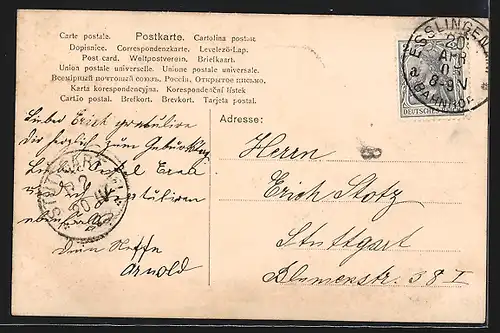 Carte postale. Postkarte. Cartolina postale
Dopisnice. Correspondenzkarte. Levelező-Lap.
Post card. Weltpostverein. Briefkaart.
Union postale universelle. Unione postale universale.
Всемірный почтовый союзъ. Россія. Открытое письмо.
Karta korespondencyjna. Korespondenční listek
Cartão postal. Brefkort. Brevkort. Tarjeta postal.
ESSLINGEN
20
APR
BAHNHOF
DEUTSCHES
Adresse:
Lieber Erich gratulire
dir herzlich zum Geburtstag
Lieber
gratuliren
ebenfalls
Dein Neffe
Arnold
STUTTGART
20
Herrn
Erich Stotz
Stuttgart
Blumenstr. 38 I
8